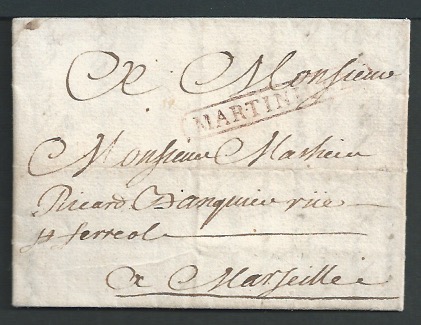 A Monsieur
MARTINI
Monsieur Mathieu
Ricard Banquier rüe
st ferreol
a Marseille